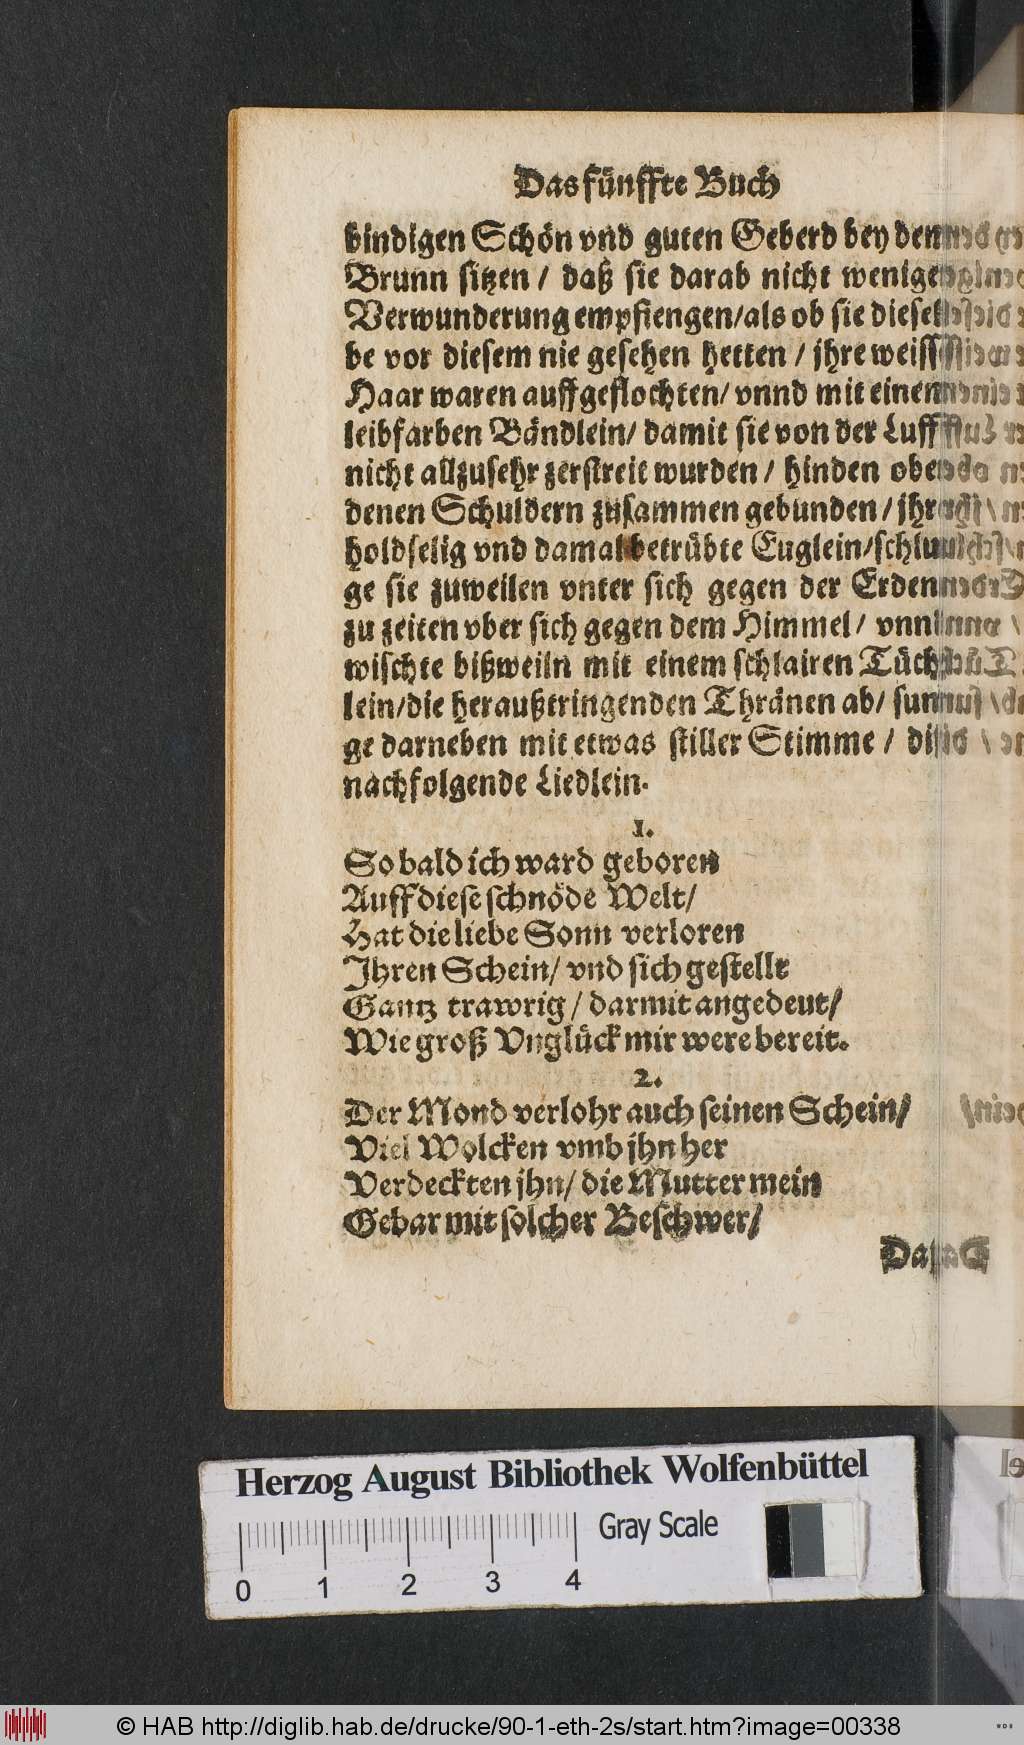 Das fünffte Buch
bindigen Schön vnd guten Geberd bey dem
Brunn sitzen / daß sie darab nicht weniger
Verwunderung empfiengen/als ob sie diesel-
be vor diesem nie gesehen hetten / jhre weiss
Haar waren auffgeflochten/ vnnd mit einem
leibfarben Bändlein/ damit sie von der Lufft
nicht allzusehr zerstreit wurden / hinden ob
denen Schuldern zusammen gebunden / jhre
holdselig vnd damal betrübte Euglein/schlu-
ge sie zuweilen vnter sich gegen der Erden
zu zeiten vber sich gegen dem Himmel/ vnnd
wischte bißweiln mit einem schlairen Tüch-
lein/die heraußtringenden Thränen ab/ sun-
ge darneben mit etwas stiller Stimme / diß
nachfolgende Liedlein.
1.
So bald ich ward geboren
Auff diese schnöde Welt/
Hat die liebe Sonn verloren
Jhren Schein/ vnd sich gestellt
Gantz trawrig / darmit angedeut/
Wie groß Vnglück mir were bereit.
2.
Der Mond verlohr auch seinen Schein/
Viel Wolcken vmb jhn her
Verdeckten jhn/ die Mutter mein
Gebar mit solcher Beschwer/
Herzog August Bibliothek Wolfenbüttel
Gray Scale
0 1 2 3 4
© HAB http://diglib.hab.de/drucke/90-1-eth-2s/start.htm?image=00338